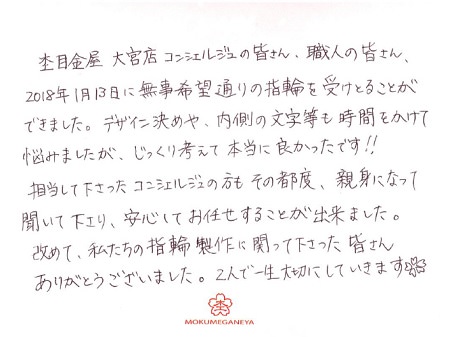 杢目金屋 大宮店 コンシェルジュの皆さん、職人の皆さん、
2018年1月13日に無事希望通りの指輪を受けとることが
できました。デザイン決めや、内側の文字等も時間をかけて
悩みましたが、じっくり考えて本当に良かったです!!
担当して下さったコンシェルジュの方もその都度、親身になって
聞いて下さり、安心してお任せすることが出来ました。
改めて、私たちの指輪製作に関って下さった皆さん
ありがとうございました。2人で一生大切にしていきます
MOKUMEGANEYA